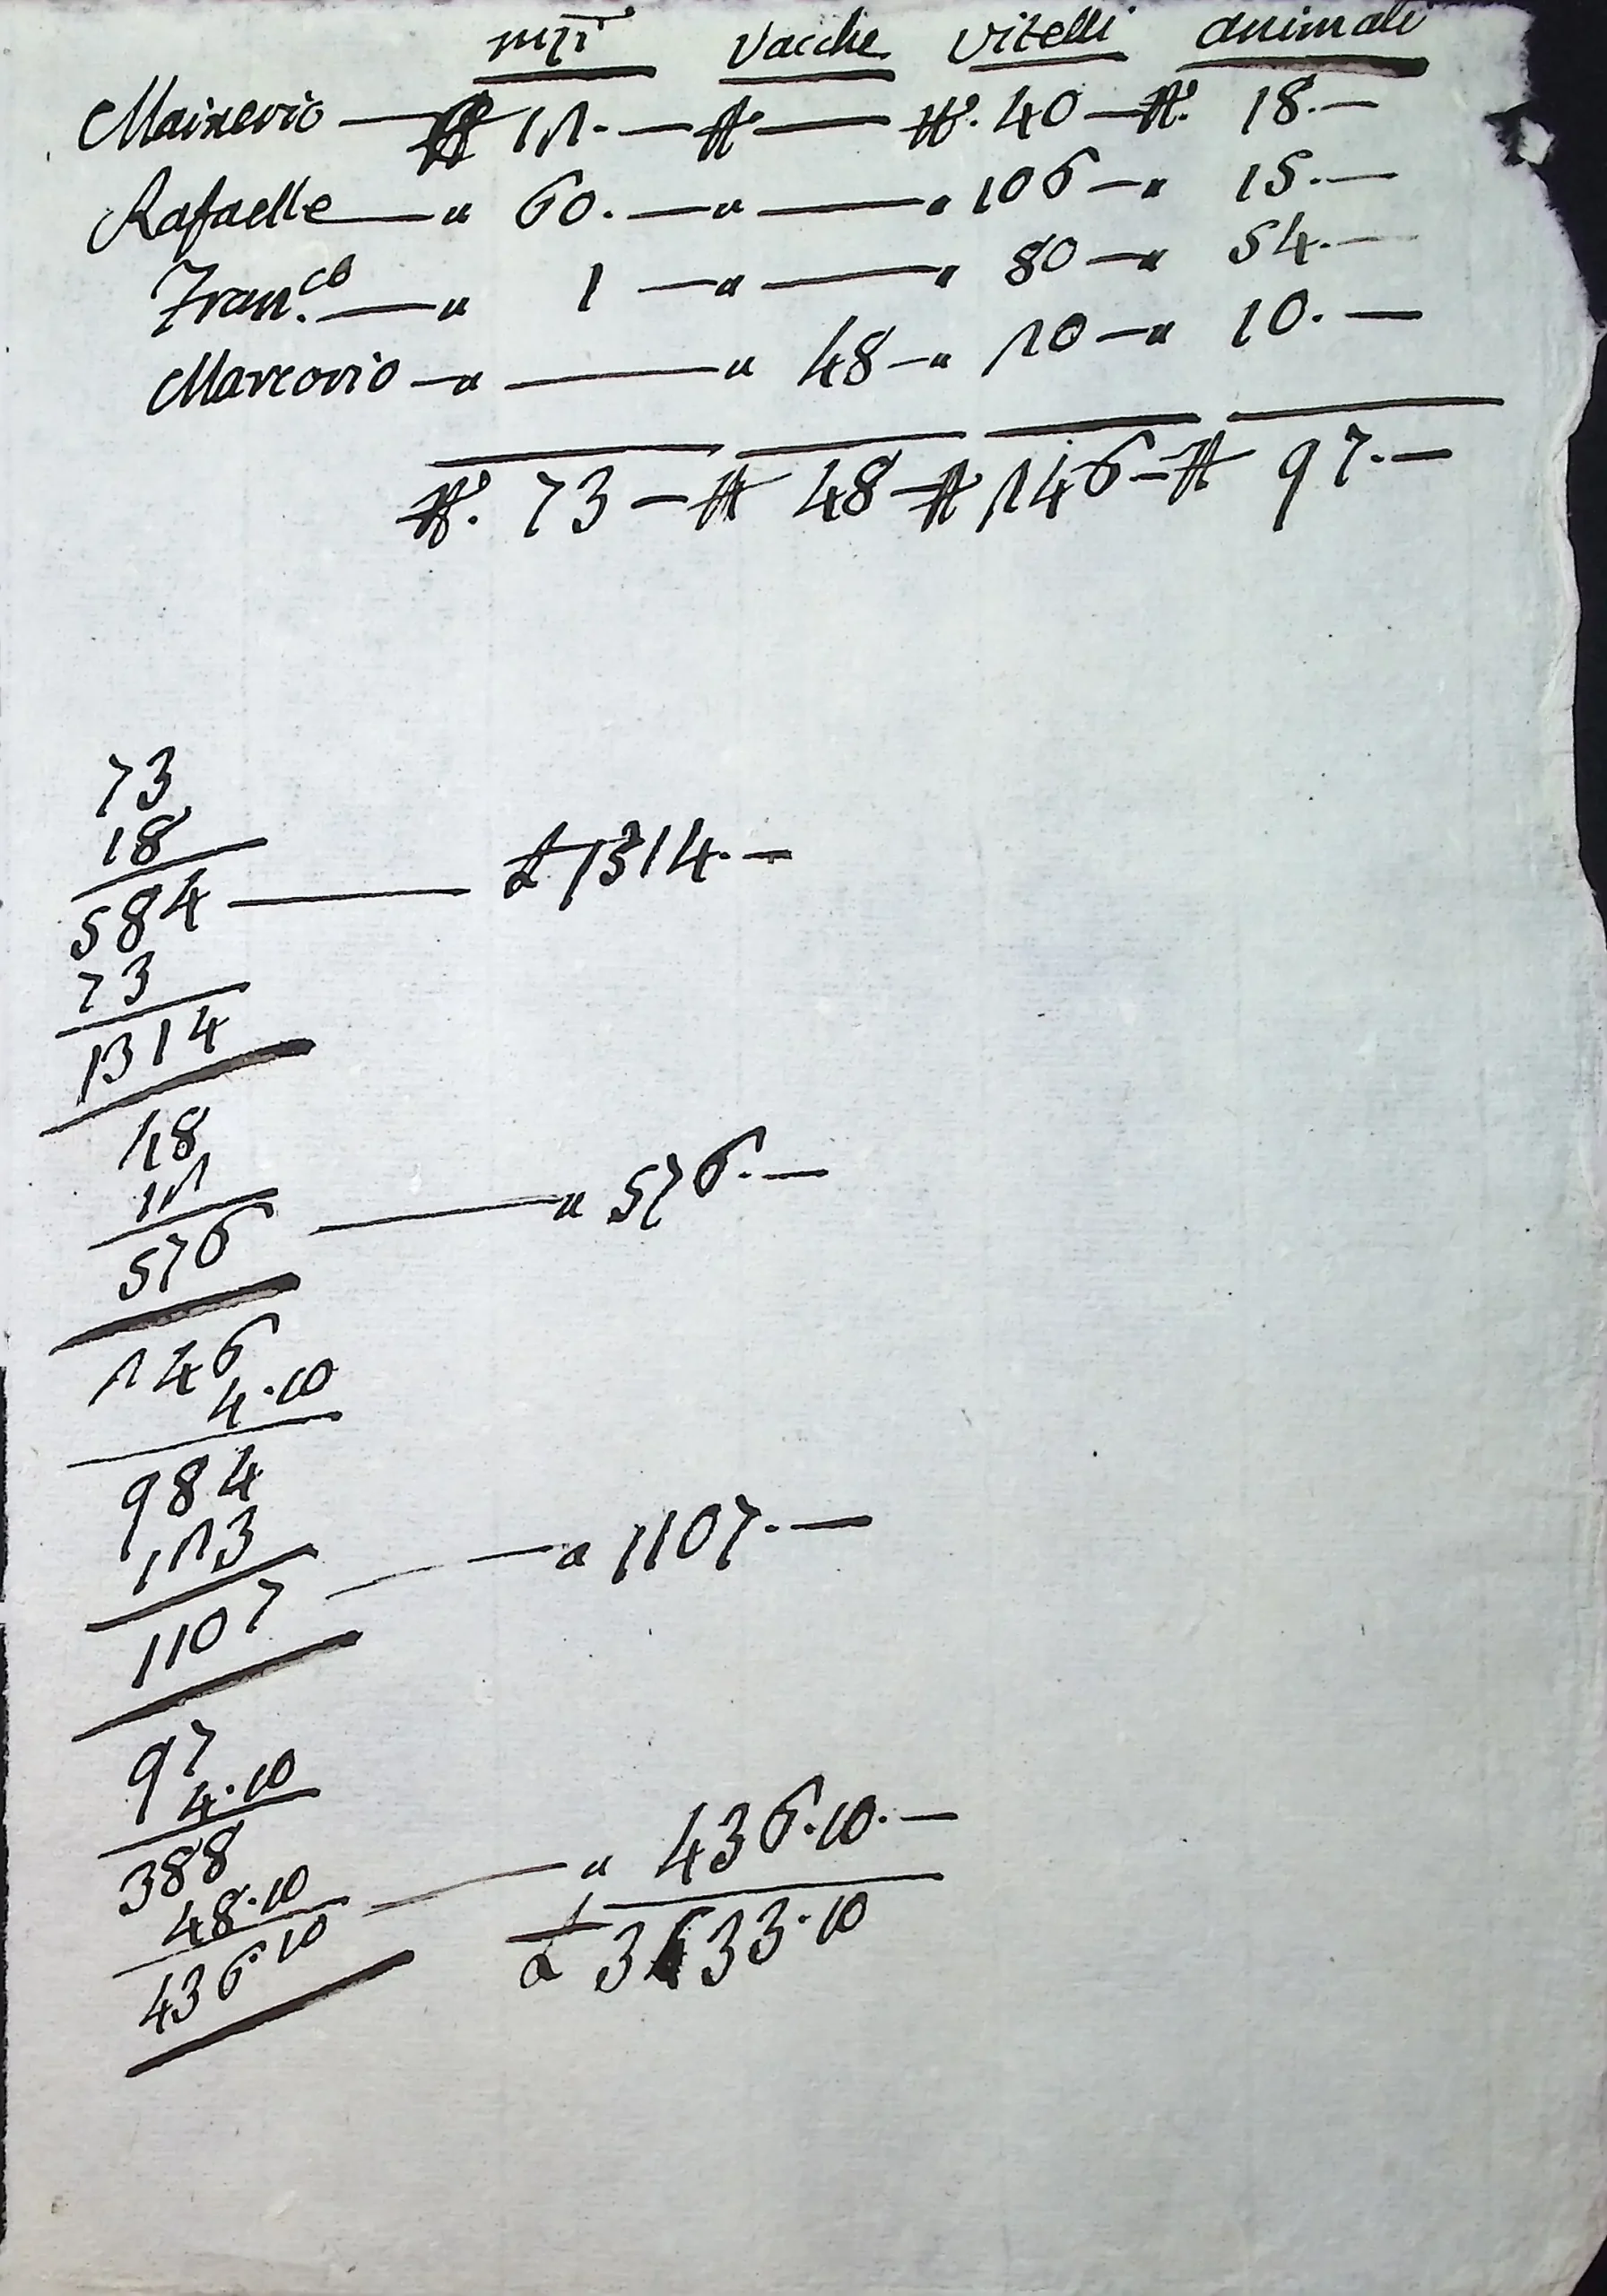 Vacche Vitelli animali
Mainerio — N.º 12. — N.º — N.º 40 — N.º 18. —
Rafaelle — " 60. — " — " 106 — " 15. —
Fran.co — " 1 — " — " 80 — " 54. —
Marcorio — " — " 48 — " 20 — " 10. —
N.º 73 — N.º 48 — N.º 246 — N.º 97. —
73
18
584 — £ 1314. —
73
1314
48
12
576 — " 576. —
246
4.10
984
123
1107 — " 1107. —
97
4.10
388
48.10 — " 436.10. —
436.10 £ 3433.10